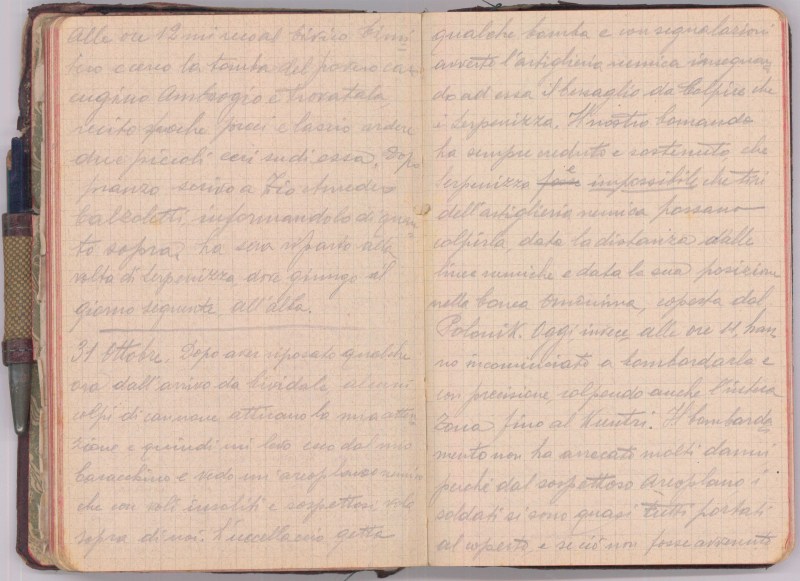 Alle ore 12 mi reco al Civico Cimi
tero cerco la tomba del povero cau
cugino Ambrogio e trovatala,
recito poche preci e lascio ardere
due piccioli ceri su di essa. Dopo
pranzo scrivo a Zio Amedeo
Calzoletti, informandolo di quan
to sopra, ha sera riparto alla
volta di Serpenizza dove giungo il
giorno seguente all'alba.
31 Ottobre. Dopo aver riposato qualche
ora dall'arrivo da Cividale alcuni
colpi di cannone attirano la mia atten
zione e quindi mi levo esco dal mio
baracchino e vedo un areoplano nemico
che con voli insoliti e sospettosi vola
sopra di noi. L'uccellaccio getta
qualche bomba e con segnalazioni
avverte l'artiglieria nemica insegnan
do ad essa il bersaglio da colpire che
è Serpenizza. Il nostro Comando
ha sempre veduto e sostenuto che
Serpenizza impossibile che tiri
dell'artiglieria nemica possano
colpirla, data la distanza dalle
linee nemiche e data la sua posizione
nella conca omonima, coperta dal
Polonik. Oggi invece alle ore 11, han
no incominciato a bombardarla e
con precisione colpendo anche l'intera
zona fino al . Il bombarda
mento non ha arrecato molti danni
perchè dal sospettoso areoplano i
soldati si sono quasi tutti portati
al coperto e se ciò non fosse avvenuto